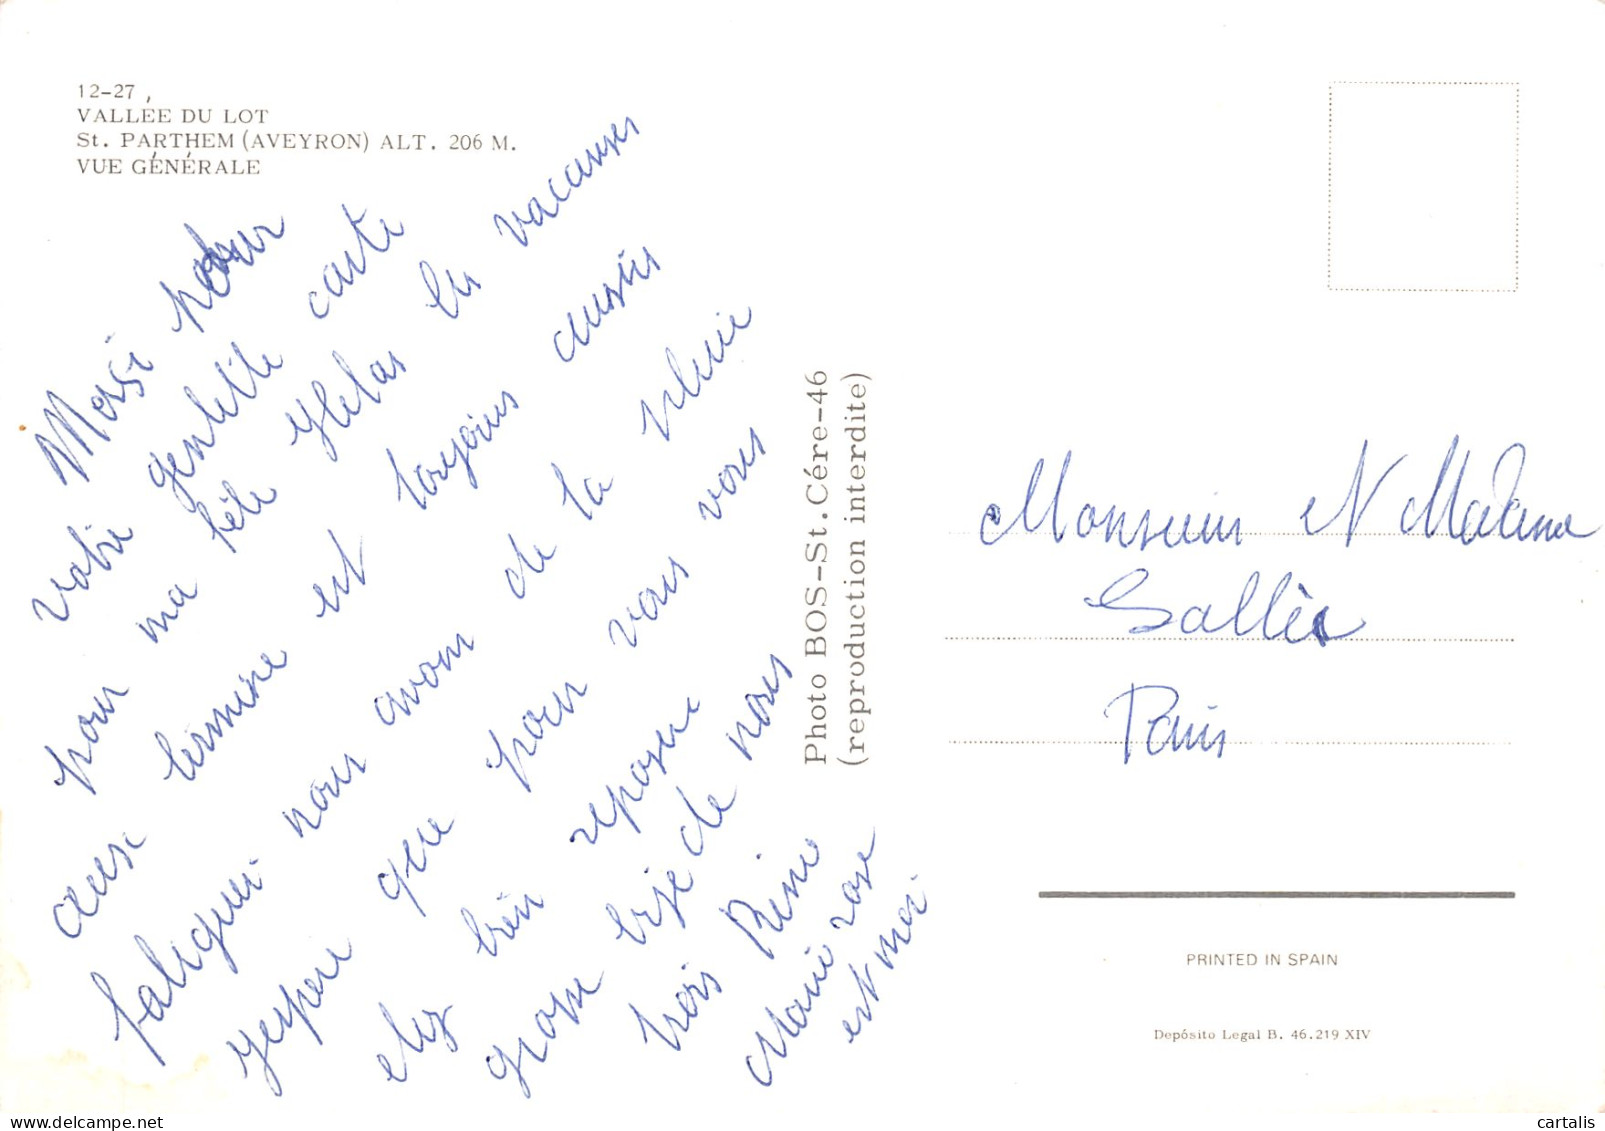 12-27,
VALLÉE DU LOT
St. PARTHEM (AVEYRON) ALT. 206 M.
VUE GÉNÉRALE
Mersi pour
votre gentille carte
pour ma fête Helas les vacanses
cause termine est toujours aussis
fatiguer nous avons de la pluie
jespere que pour vous vous
chez bien reposer
grosse bise de nous
trois Rene
Marie rose
et moi.
Photo BOS-St. Cére-46
(reproduction interdite)
Monsieur et Madame
Sallès
Paris
PRINTED IN SPAIN
Depósito Legal B. 46.219 XIV
cartalis